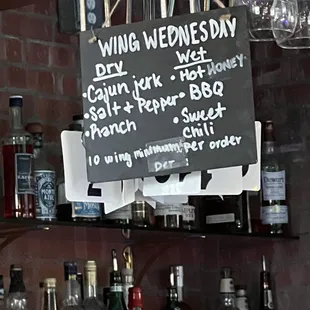 WING WEDNESDAY
Dry
Wet
• Cajun jerk
• Salt + Pepper
• Ranch
• Hot HONEY
• BBQ
• Sweet Chili
10 wing minimum per order